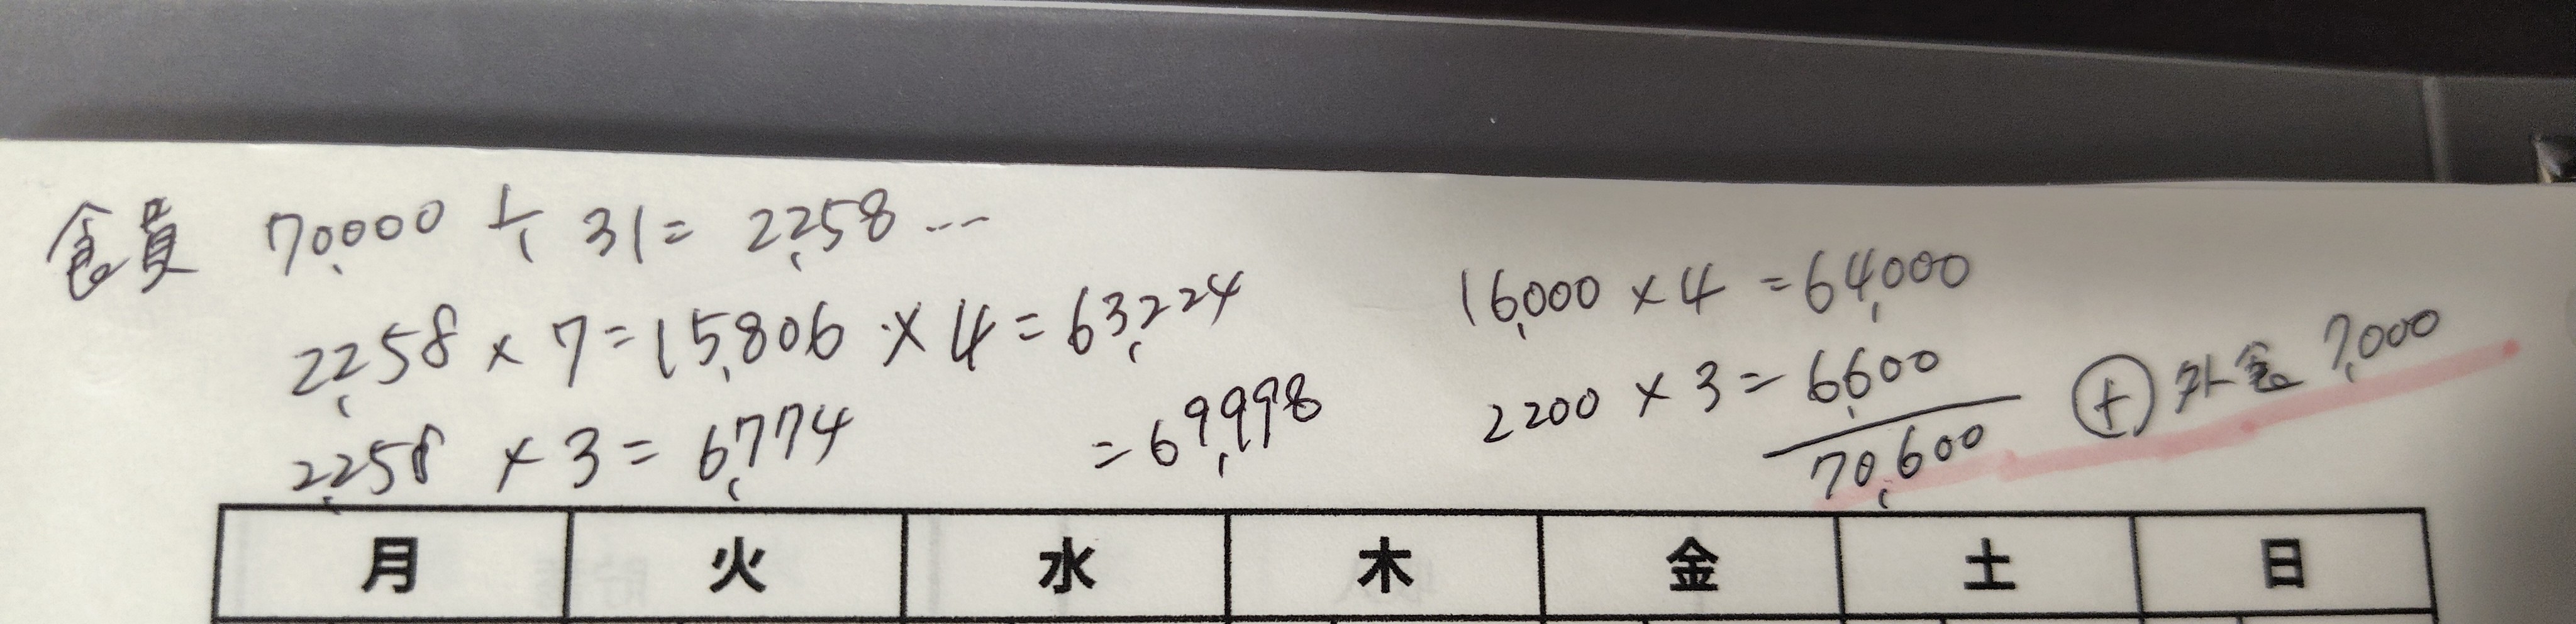 食費 70,000 ÷ 31 = 2,258 ...
2,258 × 7 = 15,806 × 4 = 63,224
2,258 × 3 = 6,774 = 69,998
16,000 × 4 = 64,000
2200 × 3 = 6,600
70,600
⊕ 外食 7,000
月 火 水 木 金 土 日